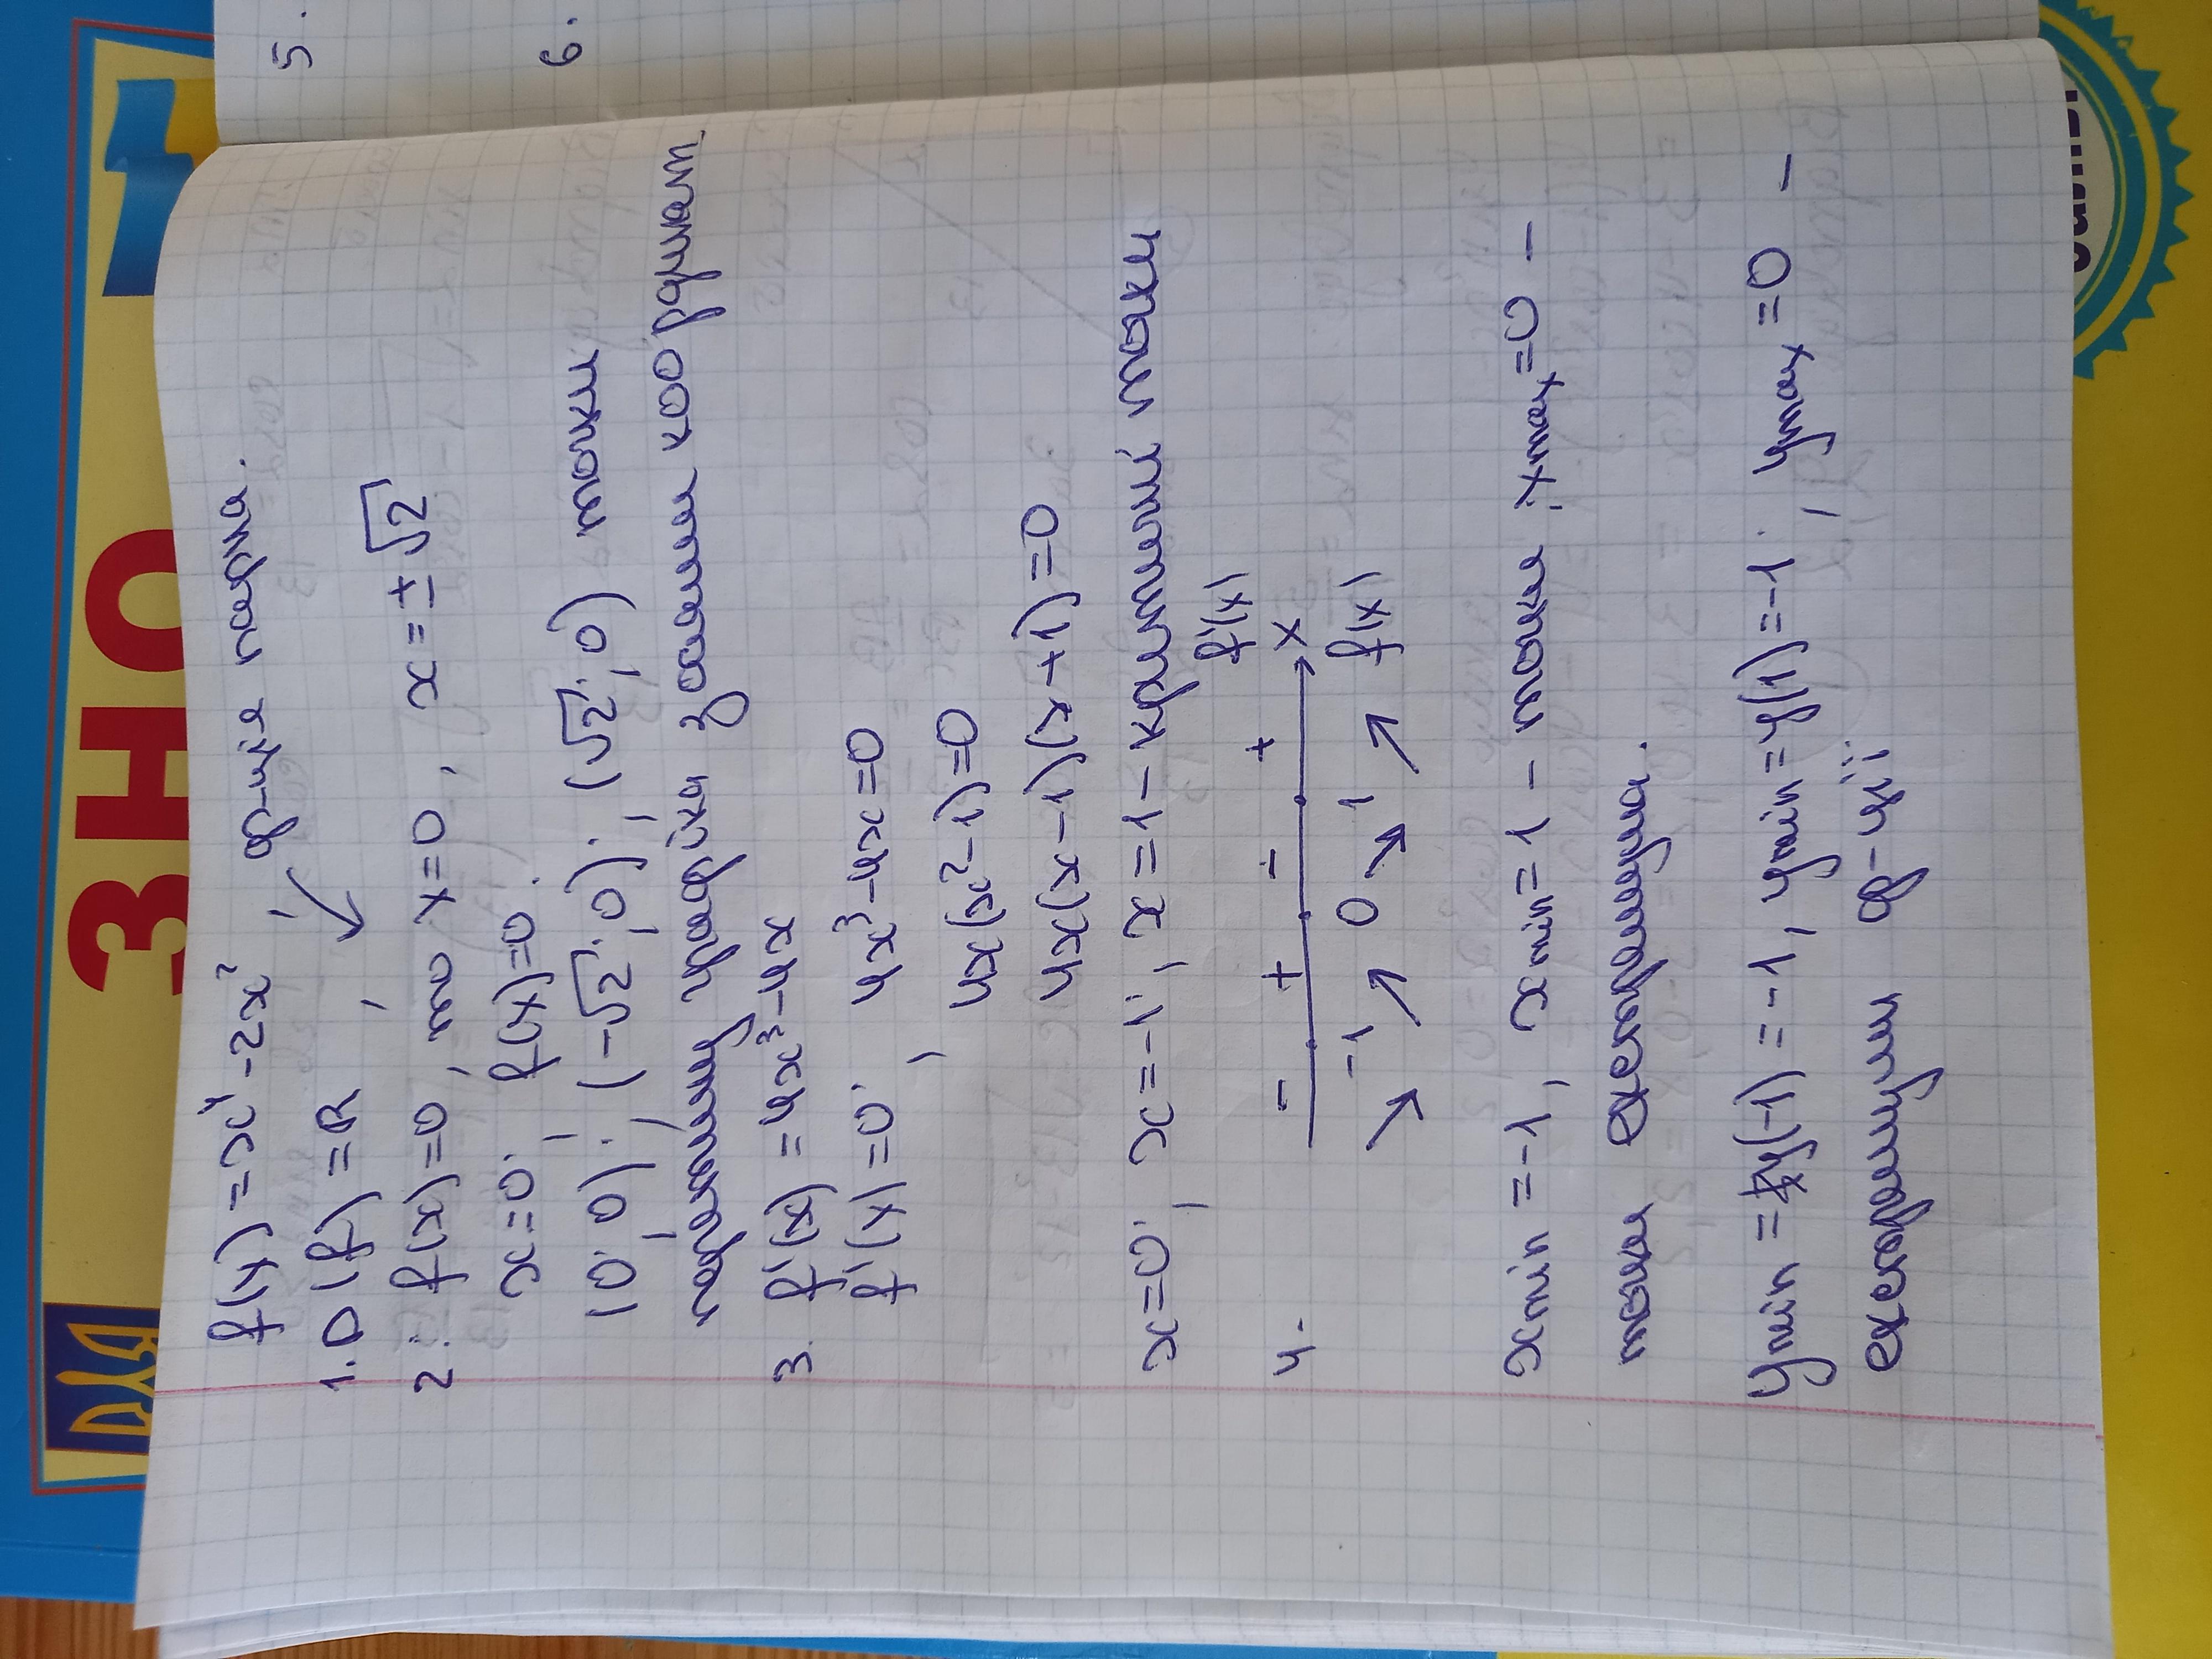 5.
6.
ЗНО
f(x) = x⁴ - 2x² ; ф-ція парна.
1. D(f) = R ;
2. f(x) = 0, то x = 0, x = ±√2
x = 0; f(x) = 0;
(0; 0); (-√2; 0); (√2; 0) точки
перетину графіка з осями координат
3. f'(x) = 4x³ - 4x
f'(x) = 0; 4x³ - 4x = 0
4x(x² - 1) = 0
4x(x - 1)(x + 1) = 0
x = 0; x = -1; x = 1 - критичні точки
4. - + - + f'(x)
x
-1 0 1 f(x)
xmin = -1, xmin = 1 - точки; xmax = 0 -
точки екстремума.
ymin = y(-1) = -1, ymin = y(1) = -1; ymax = 0 -
екстремуми ф-ції